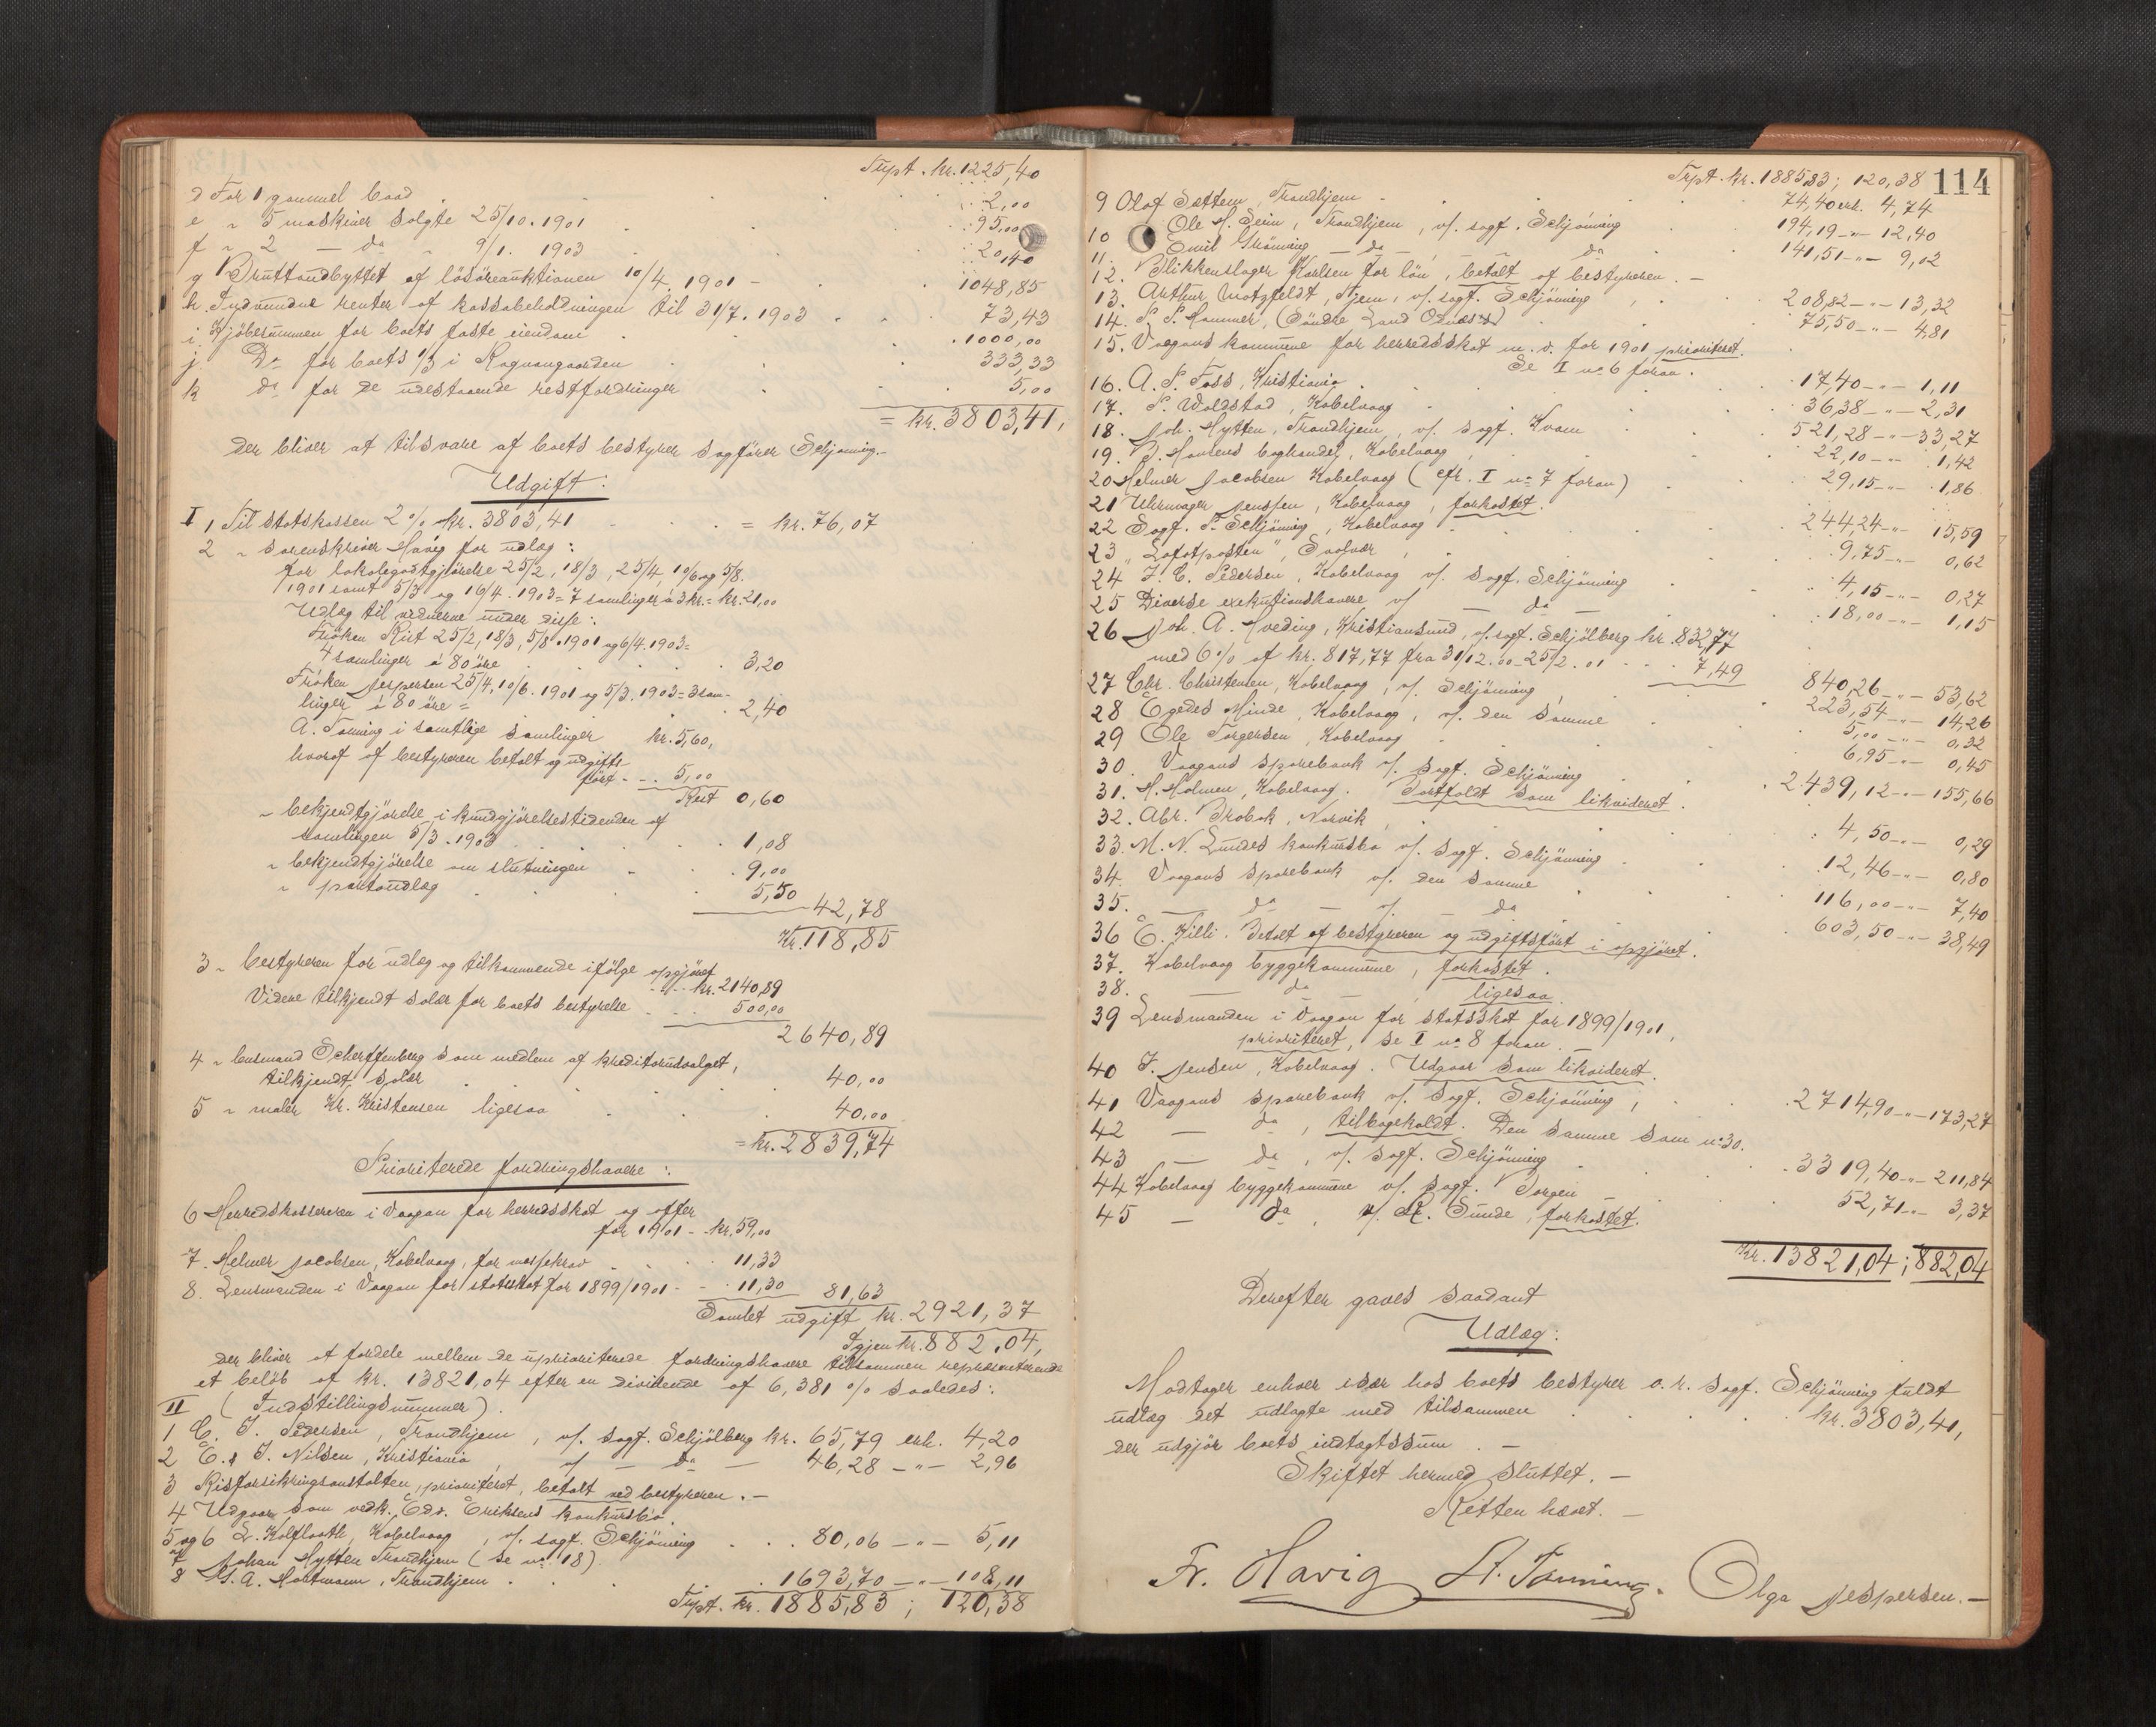 Trpt. kr. 1225,40
d For 1 gammel baad . 2,00
e " 5 maskiner solgte 25/10. 1901 . 95,00
f " 2 — do 9/1. 1903 20,40
g Bruttoudbyttet af lösöreauktionen 10/4. 1901 - 1048,85
h. Indvundne renter af kassabeholdningen til 31/7. 1903 . 73,43
i Kjöbesummen for boets faste eiendom . 1000,00
j Do for boets 1/3 i Kagnangaarden . 333,33
k do for de udestaaende restfordringer . 5,00
= kr. 3803,41,
der bliver at tilsvare af boets bestyrer sagförer Schjönning.-
Udgift:
I 1, Til statskassen 2% kr. 3803,41 = kr. 76,07
2 " sorenskriver Havig for udlæg:
for lokalegodtgjörelse 25/2, 18/3, 25/4, 10/6 og 5/8.
1901 samt 5/3 og 16/4. 1903 = 7 samlinger á 3 kr. = kr. 21,00
Udlæg til vidnerne under disse:
Fröken Rist 25/2, 18/3, 5/8. 1901 og 6/4. 1903=
4 samlinger á 80 öre . 3,20
Fröken Jespersen 25/4, 10/6. 1901 og 5/3. 1903 = 3 sam-
linger á 80 öre = . 2,40
A. Tönning i samtlige samlinger kr. 5,60,
hvoraf af bestyreren betalt og udgifts-
fört - . . 5,00
Rest 0,60
" bekjendtgjörelse i kundgjörelsestidenden af
samlingen 5/3. 1903 . 1,08
" bekjendtgjörelse om slutningen . 9,00
" portoudlæg . 5,50
42,78
Kr. 118,85
3 " bestyreren for udlæg og tilkommende ifölge opgjöret
. . . kr. 2140,89
Videre tilkjendt salær for boets bestyrelse . . . 500,00
2640,89
4 " lensmand Scherffenberg som medlem af kreditorudvalget,
tilkjendt salær 40,00
5 " maler Kr. Kristensen ligesaa . 40,00
= kr. 2839,74
Prioriterede fordringshavere:
6 Herredskassereren i Vaagan for herredsskat og offer
for 1901 - . kr. 59,00
7. Helmer Jacobsen, Kabelvaag, for . . 11,33
8. Lensmanden i Vaagan for statsskat for 1899/1901 - - 11,30 81,63
Samlet udgift kr. 2921,37
Igjen kr. 882,04,
der bliver at fordele mellem de uprioriterede fordringshavere tilsammen repræsenterende
et belöb af kr. 13821,04 efter en dividende af 6,381 % saaledes:
II (Indstillingsnummer).
1 C. I. Pedersen, Trondhjem, v/. sagf. Schjölberg kr. 65,79 erh. 4,20
2 E. & I. Nilsen, Kristiania, v/ — do — 46,28 —"— 2,96
3 Risforsikringsanstalten, prioriteret, betalt ved bestyreren.-
4 Udgaar som vedk. Edv. Eriksens konkursbo.
5 og 6 L. Kolflaath, Kabelvaag, v/. sagf. Schjönning . . . 80,06 —"— 5,11
7 Johan Hytten Trondhjem (se no 18).
8 M. A. Hartmann, Trondhjem . 1693,70 —"— 108,11
Trpt. kr. 1885,83; 120,38
114
Trpt. kr. 1885,83; 120,38
9 Olaf Sættem, Trondhjem . 74,40 erh. 4,74
10 Ole H. Seim, Trondhjem, v/. sagf. Schjönning 194,19 —"— 12,40
11. Emil Grönning — do — " — do 141,51 —"— 9,02
12. Blikkenslager Karlsen for lön, betalt af bestyreren. -
13. Arthur Motzfeldt, Tjem, v/. sagf. Schjönning , 208,82 —"— 13,32
14. P. P. Hammer, (Söndre Land Odnæs) 75,50 —"— 4,81
15. Vaagans kommune for herredsskat m. v. for 1901 prioriteret.
Se I no 6 foran.
16. A. P. Foss, Kristiania . 17,40 —"— 1,11
17. P. Woldstad, Kabelvaag . 36,38 —"— 2,31
18. Joh. Hytten, Trondhjem, v/. sagf. Kvam . 521,28 —"— 33,27
19. B. Hansens boghandel, Kabelvaag , 22,10 —"— 1,42
20 Helmer Jacobsen Kabelvaag (cfr. I no 7 foran) . 29,15 —"— 1,86
21 Uhrmager Jenssen, Kabelvaag, forkastet.
22 Sagf. P. Schjönning, Kabelvaag . 244,24 —"— 15,59
23 "Lofotposten", Svolvær , 9,75 —"— 0,62
24 I. C. Pedersen, Kabelvaag v/. sagf. Schjönning 4,15 —"— 0,27
25 Diverse exekutionshavere v/ — do — 18,00 —"— 1,15
26 Joh. A. Hveding, Kristiansund, v/. sagf. Schjölberg kr. 832,77
med 6% af kr. 817,77 fra 31/12.00-25/2.01 - . . 7,49
840,26 —"— 53,62
27 Chr. Christensen, Kabelvaag, v/. Schjönning , 223,54 —"— 14,26
28 Egedes Minde, Kabelvaag, v/. den samme 5,00 —"— 0,32
29 Ole Torgersen, Kabelvaag 6,95 —"— 0,45
30. Vaagans sparebank v/. sagf. Schjönning . 2439,12 —"— 155,66
31. H. Holmen, Kabelvaag. Bortfaldt som likvideret.
32. Abr. Brobak, Narvik , 4,50 —"— 0,29
33. M. N. Lundes konkursbo v/. sagf. Schjönning 12,46 —"— 0,80
34. Vaagans sparebank v/. den samme . 116,00 —"— 7,40
35. — do — v/. do . 603,50 —"— 38,49
36 E. Killi. Betalt af bestyreren og udgiftsfört i opgjöret.
37. Kabelvaag byggekommune, forkastet.
38. — do — , ligesaa
39 Lensmanden i Vaagan for statsskat for 1899/1901,
prioriteret, se I no 8 foran.
40 I. Jensen, Kabelvaag. Udgaar som likvideret.
41 Vaagans sparebank v/. sagf. Schjönning, . 2714,90 —"— 173,27
42 — do , tilbagekaldt. Den samme som no 30.
43 — do , v/. sagf. Schjönning . 3319,40 —"— 211,84
44 Kabelvaag byggekommune v/. sagf. Borgen . 52,71 —"— 3,37
45 — do , v/. Sunde, forkastet.
Kr. 13821,04; 882,04
Derefter gaves saadant
Udlæg:
Modtager enhver især hos boets bestyrer o. r. sagf. Schjönning fuldt
udlæg det udlagte med tilsammen . . . kr. 3803,41,
der udgjör boets indtægtssum. -
Skiftet hermed sluttet. -
Retten hævet. -
Fr. Havig A. Tönning. Olga Jespersen. -